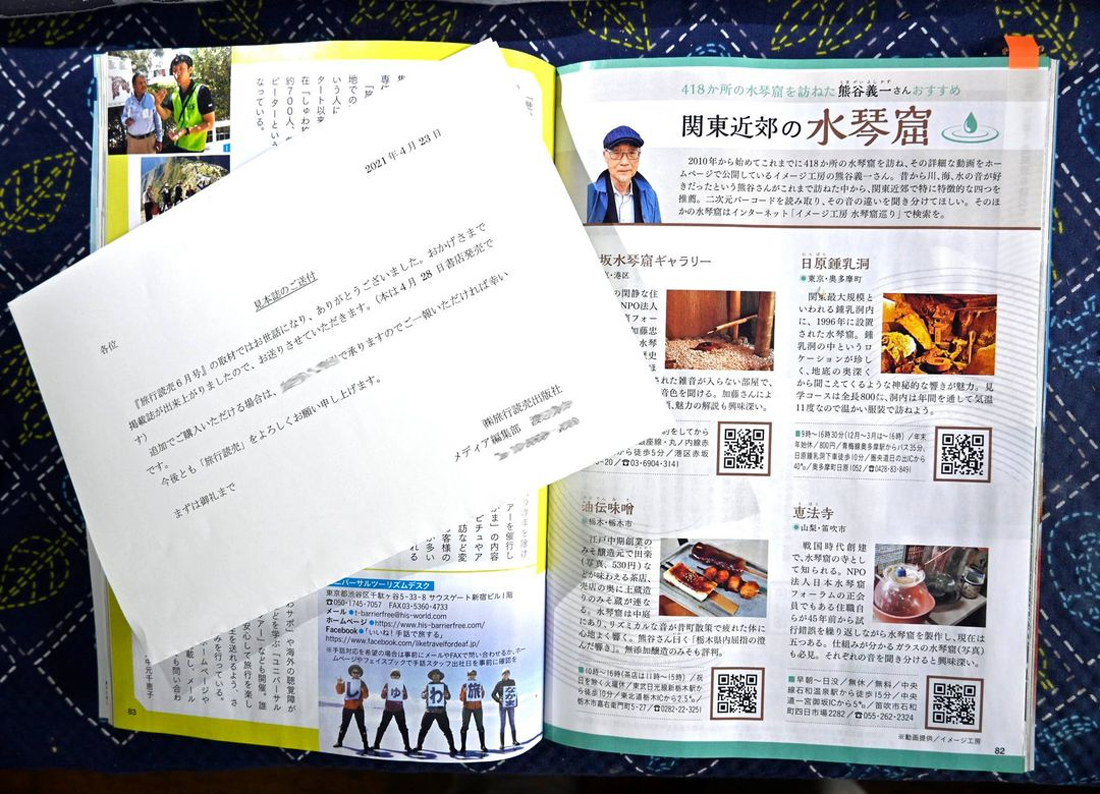 2021年4月23日
見本誌のご送付
各位
『旅行読売6月号』の取材ではお世話になり、ありがとうございました。おかげさまで
掲載誌が出来上がりましたので、お送りさせていただきます。(本は4月28日書店発売で
す)
追加でご購入いただける場合は、
で承りますのでご一報いただければ幸い
です。
今後とも「旅行読売」をよろしくお願い申し上げます。
まずは御礼まで
㈱旅行読売出版社
メディア編集部
418か所の水琴窟を訪ねた熊谷義一さんおすすめ
関東近郊の水琴窟
2010年から始めてこれまでに418か所の水琴窟を訪ね、その詳細な動画をホー
ムページで公開しているイメージ工房の熊谷義一さん。昔から川、海、水の音が好
きだったという熊谷さんがこれまで訪ねた中から、関東近郊で特に特徴的な四つを
推薦。二次元バーコードを読み取り、その音の違いを聞き分けてほしい。そのほ
かの水琴窟はインターネット「イメージ工房 水琴窟巡り」で検索を。
坂水琴窟ギャラリー
京・港区
の閑静な住
NPO法人
窟フォー
加藤忠
水琴
歴史
ほ
れた雑音が入らない部屋で、
音色を聞ける。加藤さんによ
魅力の解説も興味深い。
をしてから
座線・丸ノ内線赤
から徒歩5分/港区赤坂
-20/☎03-6904-3141
日原鍾乳洞
●東京・奥多摩町
関東最大規模と
いわれる鍾乳洞内
に、1996年に設置
された水琴窟。鍾
乳洞の中というロ
ケーションが珍し
く、地底の奥深く
から聞こえてくるような神秘的な響きが魅力。見
学コースは全長800㍍、洞内は年間を通して気温
11度なので温かい服装で訪ねよう。
■9時～16時30分(12月～3月は～16時)/年末
年始休/800円/青梅線奥多摩駅からバス35分、
日原鍾乳洞下車徒歩10分/圏央道日の出ICから
40㌔/奥多摩町日原1052/☎0428-83-8491
油伝味噌
●栃木・栃木市
江戸中期創業の
みそ醸造元で田楽
(写真、530円)な
どが味わえる茶店、
売店の奥に土蔵造
りのみそ蔵が連な
る。水琴窟は中庭
にあり、リズミカルな音が昔町散策で疲れた体に
心地よく響く。熊谷さん曰く「栃木県内屈指の澄
んだ響き」。無添加醸造のみそも評判。
■10時～16時(茶店は11時～15時)/祝
日を除く火曜休/東武日光線新栃木駅か
ら徒歩10分/東北道栃木ICから2.5㌔/
栃木市嘉右衛門町5-27/☎0282-22-3251
恵法寺
●山梨・笛吹市
戦国時代創建
で、水琴窟の寺とし
て知られる。NPO
法人日本水琴窟
フォーラムの正会
員でもある住職自
らが45年前から試
行錯誤を繰り返しながら水琴窟を製作し、現在は
五つある。仕組みが分かるガラスの水琴窟(写真)
も必見。それぞれの音を聞き分けると興味深い。
■早朝～日没/無休/無料/中央
線石和温泉駅から徒歩15分/中央
道一宮御坂ICから5㌔/笛吹市石和
町四日市場2282/☎055-262-2324
※動画提供/イメージ工房
82
ニバーサルツーリズムデスク
東京都渋谷区千駄ヶ谷5-33-8 サウスゲート新宿ビル1階
☎050-1745-7057 FAX03-5360-4733
メール●t-barrierfree@his-world.com
ホームページ●https://www.his-barrierfree.com/
Facebook●「いいね!手話で旅する」
https://www.facebook.com/liketravelfordeaf.jp/
※手話対応を希望の場合は事前にメールやFAXで問い合わせるか、ホー
ムページやフェイスブックで手話スタッフ出社日を事前に確認を
しゅわ旅なかま
83